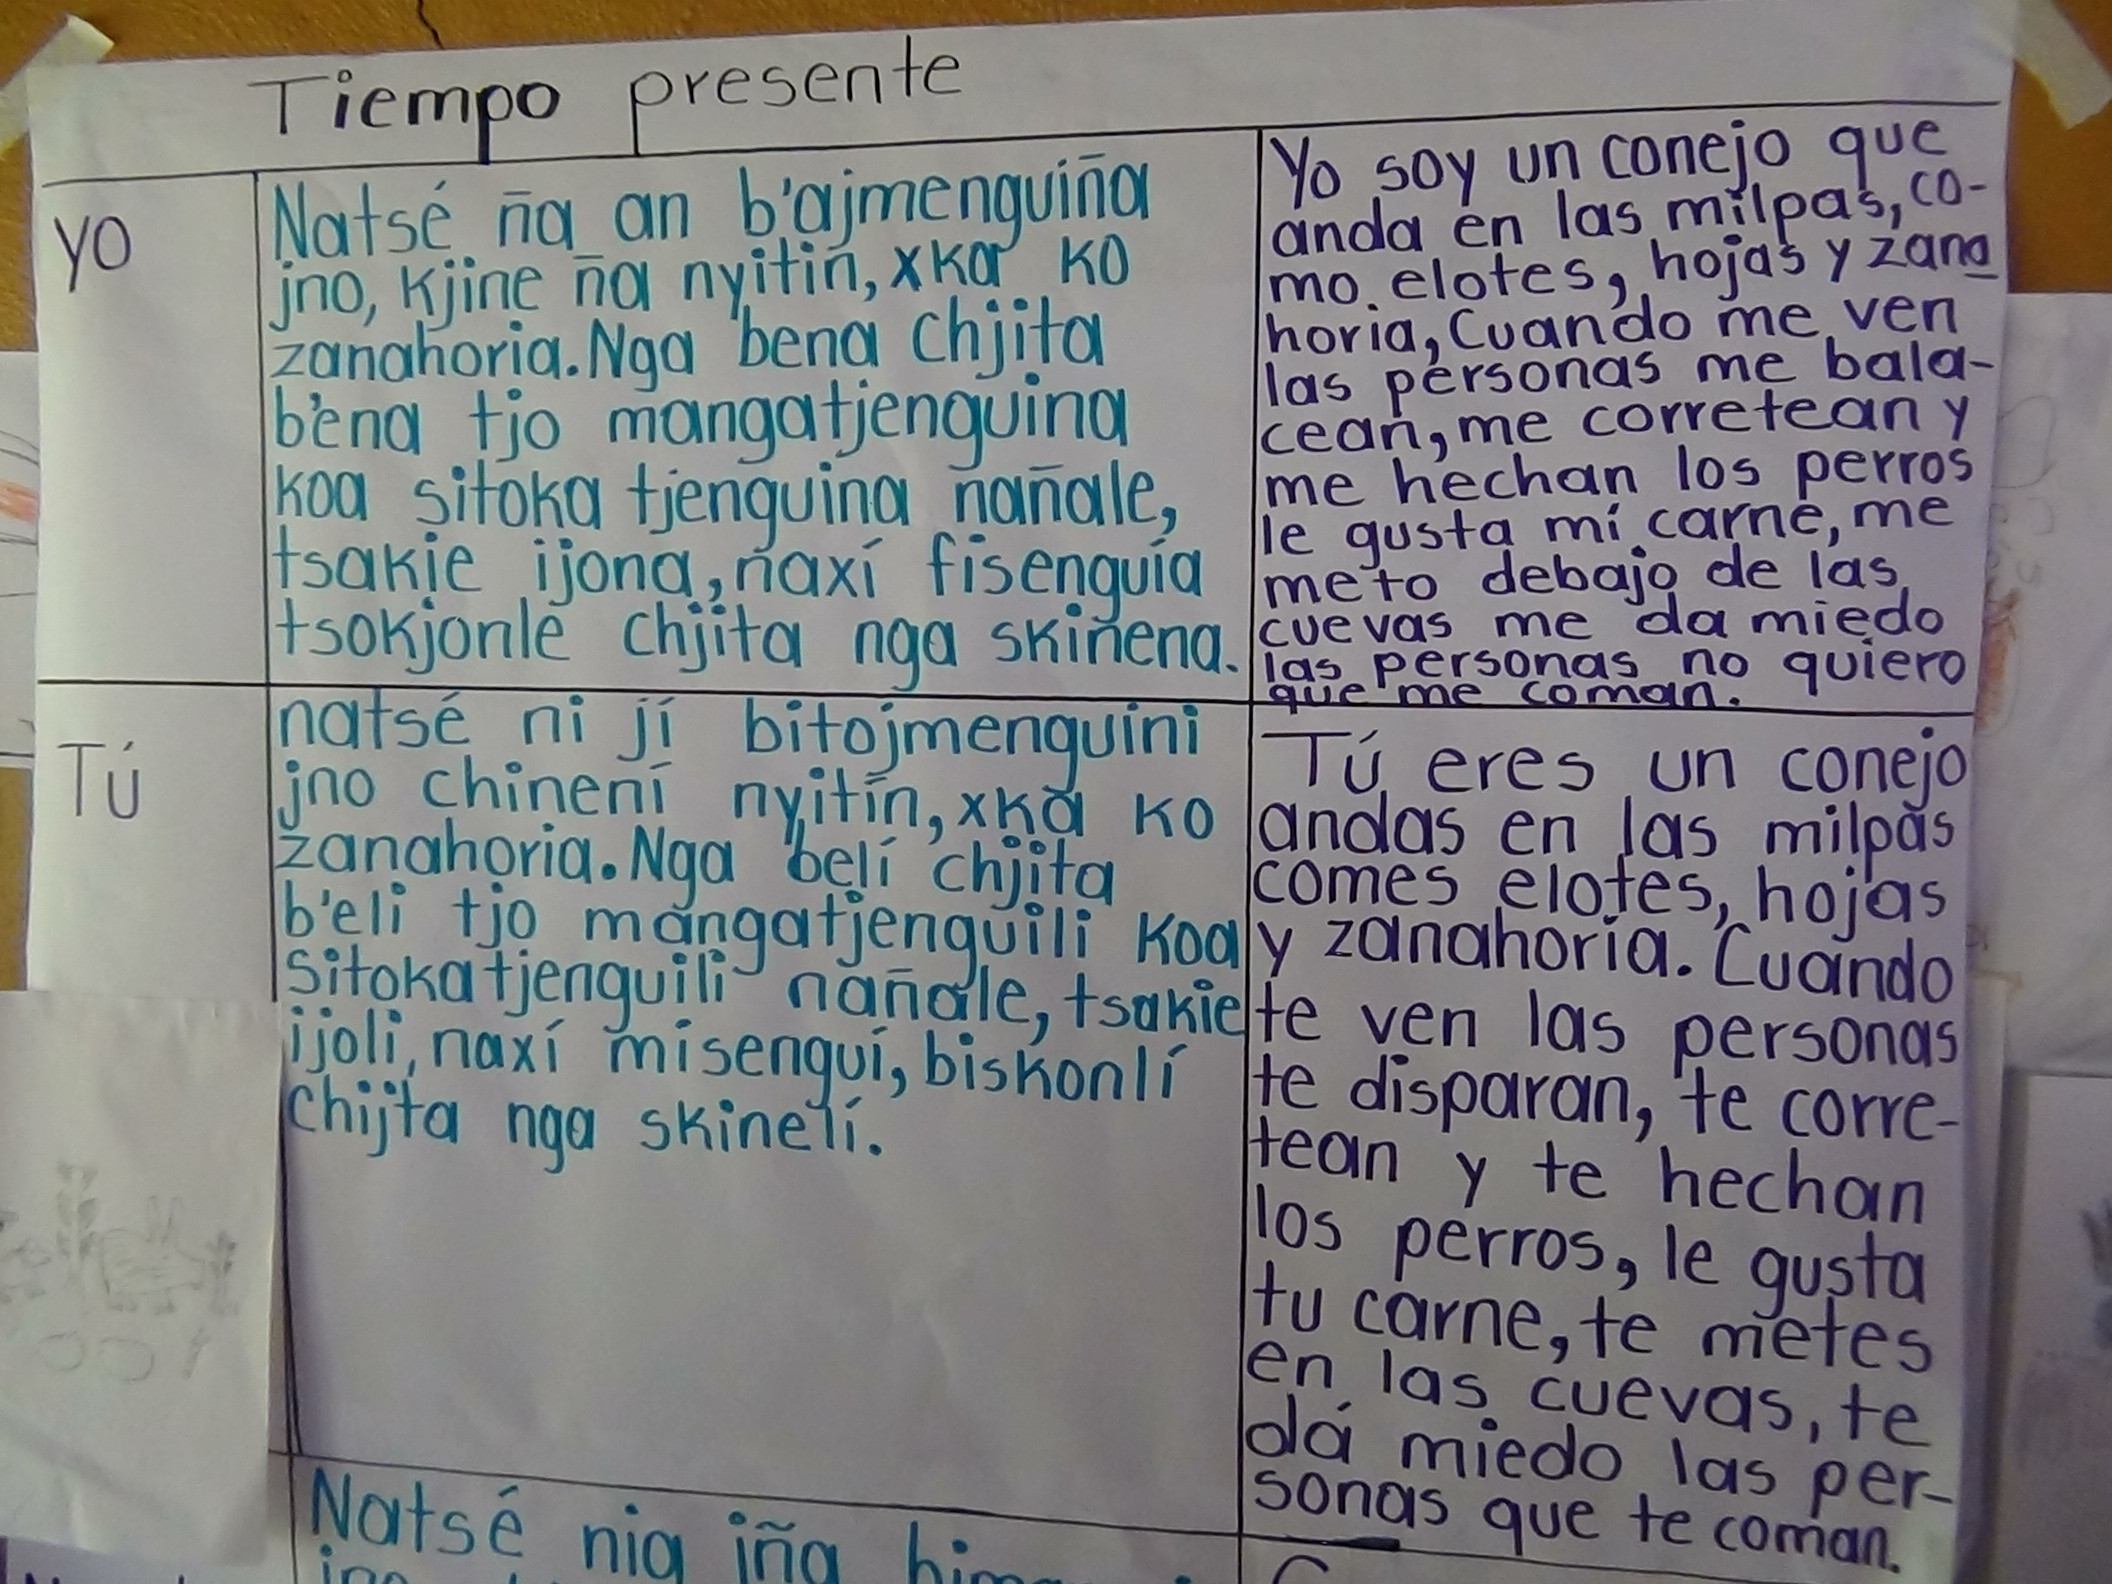 Tiempo presente
YO
Natsé n̄a an b'ajmenguin̄a
jno, kjine n̄a nyitin̄, xka ko
zanahoria. Nga bena chjita
b'ena tjo mangatjenguina
koa sitoka tjenguina n̄an̄ale,
tsakie ijona, n̄axí fisenguía
tsokjonlé chjita nga skin̄ena.
Yo soy un conejo que
anda en las milpas, co-
mo. elotes, hojas y zana
horia, Cuando me ven
las personas me bala-
cean, me corretean y
me hechan los perros
le gusta mí carne, me
meto debajo de las
cuevas me da miedo
las personas no quiero
que me coman.
Tú
natsé ni jí bitojmenguini
jno chinení nyitín, xka ko
zanahoria. Nga belí chjita
b'eli tjo mangatjenguili koa
sitoka tjenguili nan̄ale, tsakie
ijoli, naxí misenguí, biskonlí
chijta nga skinelí.
Tú eres un conejo
andas en las milpas
comes elotes, hojas
y zanahoria. Cuando
te ven las personas
te disparan, te corre-
tean y te hechan
los perros, le gusta
tu carne, te metes
en las cuevas, te
dá miedo las per-
sonas que te coman.
Natsé nia in̄a